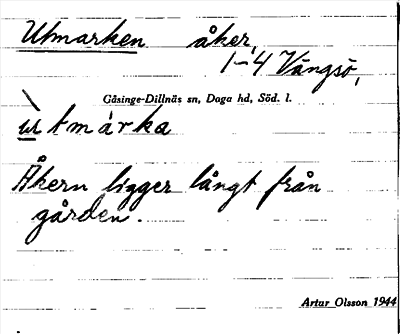 Utmarken åker,
1-4 Vängsö,
Gåsinge-Dillnäs sn, Daga hd, Söd. l.
ùtmárka
Åkern ligger långt från
gården.
Artur Olsson 1944